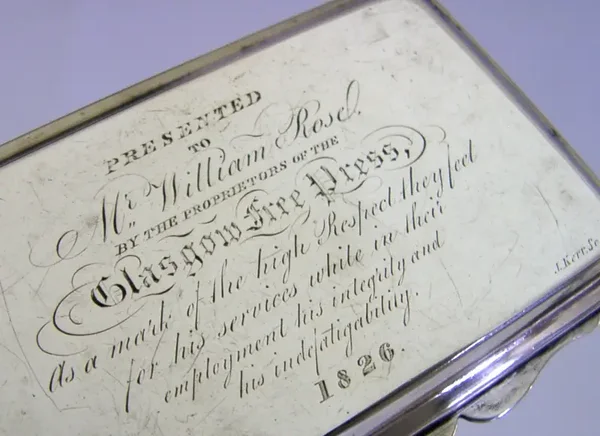 PRESENTED
TO
Mr. William Rose.
BY THE PROPRIETORS OF THE
Glasgow Free Press,
as a mark of the high Respect they feel
for his services while in their
employment his integrity and
his indefatigability.
1826.
J. Kerr. Sc